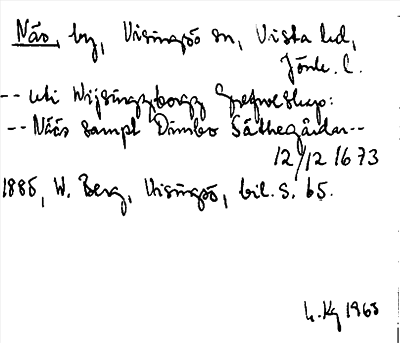 Näs, by, Visingsö sn, Vista hd,
Jönk. l.
-- uti Wijsingzborgz Grefweskap:
-- Nääs sampt Dimbo Säthegårdar --
12/12 1673
1885, W. Berg, Visingsö, bil. S. 65.
L. Kg 1963